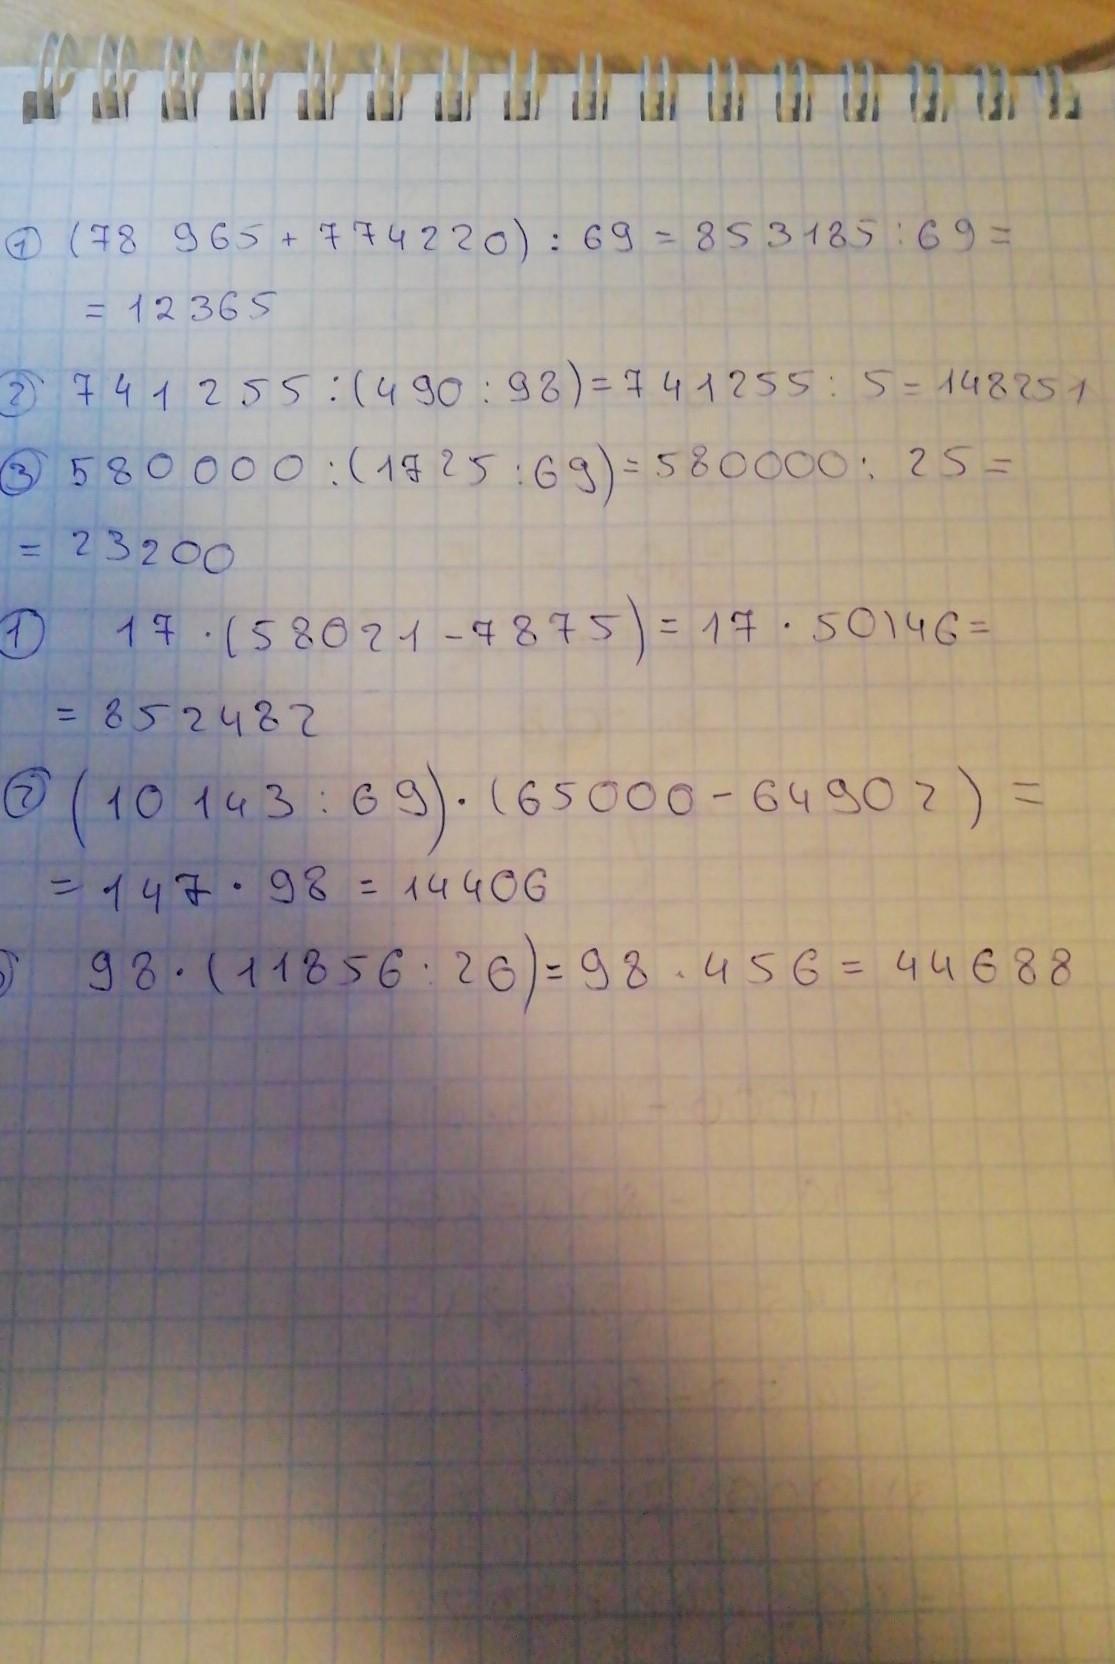 ① (78 965 + 774220) : 69 = 853185 : 69 =
= 12365
② 741255 : (490 : 98) = 741255 : 5 = 148251
③ 580000 : (1725 : 69) = 580000 : 25 =
= 23200
① 17 · (58021 - 7875) = 17 · 50146 =
= 852482
② (10143 : 69) · (65000 - 64902) =
= 147 · 98 = 14406
98 · (11856 : 26) = 98 · 456 = 44688